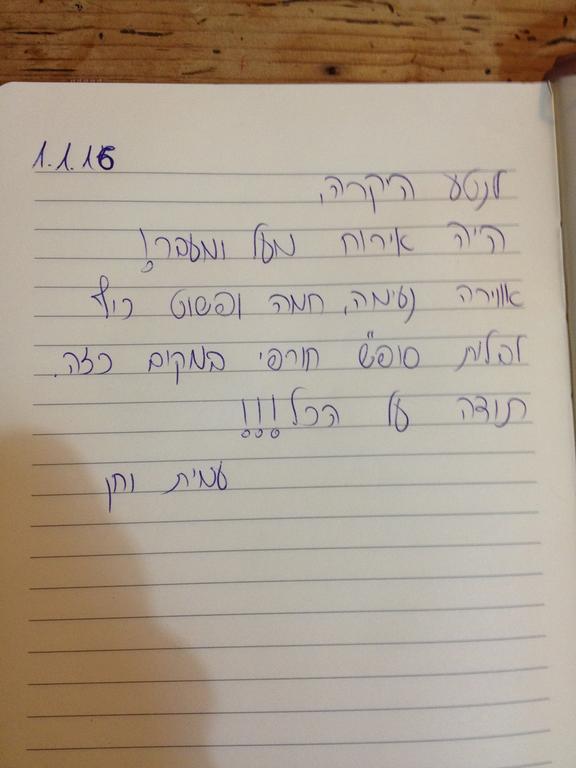 1.1.16
לנטע היקרה,
היה אירוח מעל ומעבר!
אווירה נעימה, חמה ופשוט כיף
לבלות סופ"ש חורפי במקום כזה.
תודה על הכל!!!
עמית וחן